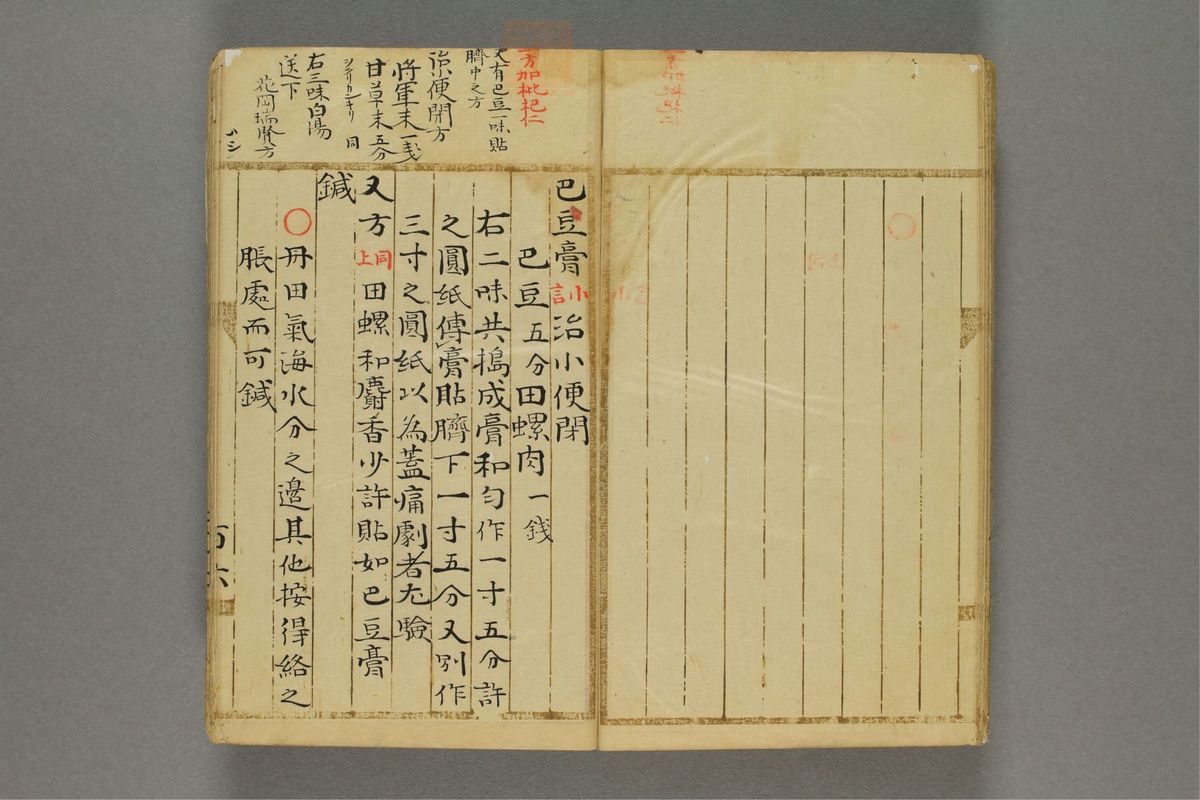 一方加枇杷仁
又有巴豆一味貼
臍中之方
治小便閉方
将軍末一戔
甘草末五分
同
右三味白湯
送下
花岡瑞賢方
巴豆膏小訓治小便閉
巴豆五分田螺肉一錢
右二味共搗成膏和匀作一寸五分許
之圓紙傅膏貼臍下一寸五分又別作
三寸之圓紙以為蓋痛劇者尤驗
又方同上田螺和麝香少許貼如巴豆膏
鍼
〇丹田氣海水分之邉其他按得絡之
脹處而可鍼